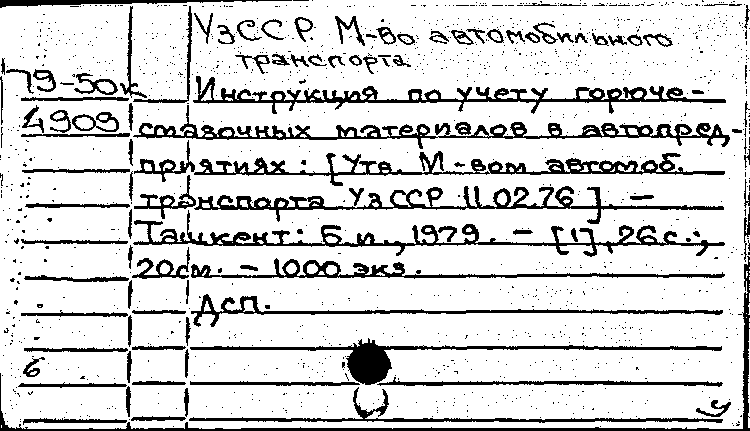 УзССР. М-во автомобильного
транспорта.
79-50к Инструкция по учету горюче-
4909 смазочных материалов в автопред-
приятиях: [Утв. М-вом автомоб.
транспорта УзССР 11.02.76]. —
Ташкент: Б.и., 1979. - [1], 26с.;
20см. - 1000 экз.
Дсп.
6
у